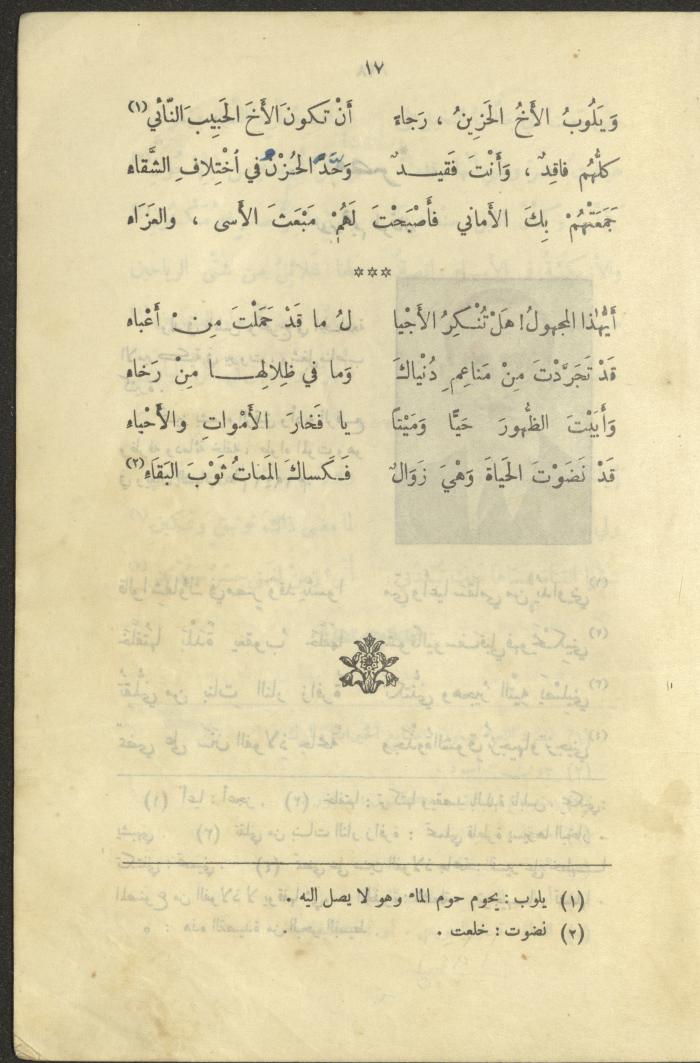 ١٧
وَيَلُوبُ الأَخُ الحَزِينُ ، رَجاءَ أَنْ تَكونَ الأَخَ الحَبِيبَ النّائي(١)
كلُّهُم فاقِدٌ ، وَأَنْتَ فَقيـــدٌ وَحَّدَ الحُزْنُ في اُخْتِلافِ الشَّقاء
جَمَعَتْهُمْ بِكَ الأَماني فَأَصْبَحْتَ لَهُمْ مَبْعَثَ الأَسى ، والعَزَاء
***
أَيُّهٰذا المجهولُ! هَلْ تُنْكِرُ الأَجْيا لُ ما قَدْ حَمَلْتَ مِنْ أَعْباء
قَدْ تَجَرَّدْتَ مِنْ مَناعِمِ دُنْياكَ وَما في ظِلالِهـــا مِنْ رَخاء
وَأَبَيْتَ الظُّهورَ حَيًّا وَمَيْتاً يا فَخارَ الأَمْواتِ والأَحْياء
قَدْ نَضَوْتَ الحَياةَ وَهْيَ زَوَالٌ فَكَساكَ المَماتُ ثَوْبَ البَقَاء(٢)
(١) يلوب : يحوم حوم الماء وهو لا يصل اليه .
(٢) نضوت : خلعت .